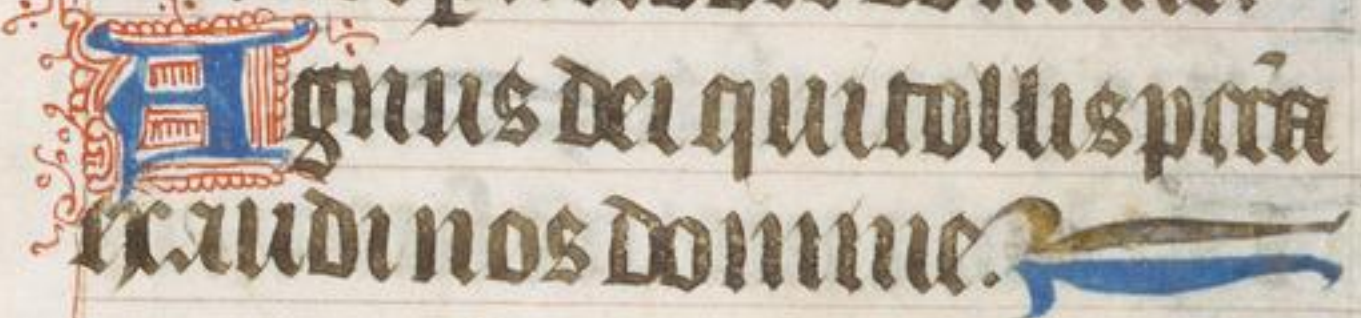 Agnus dei qui tollis pcc̄a
exaudi nos domine.